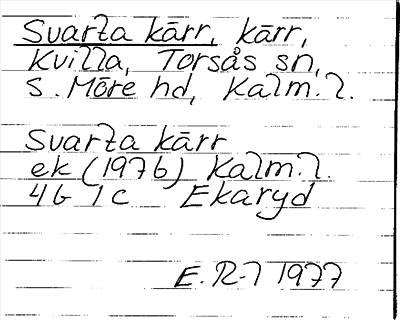 Svarta kärr, kärr,
Kvilla, Torsås sn,
S. Möre hd, Kalm. l.
Svarta kärr
ek (1976) Kalm. l.
4G 1c Ekaryd
E. R-7 1977